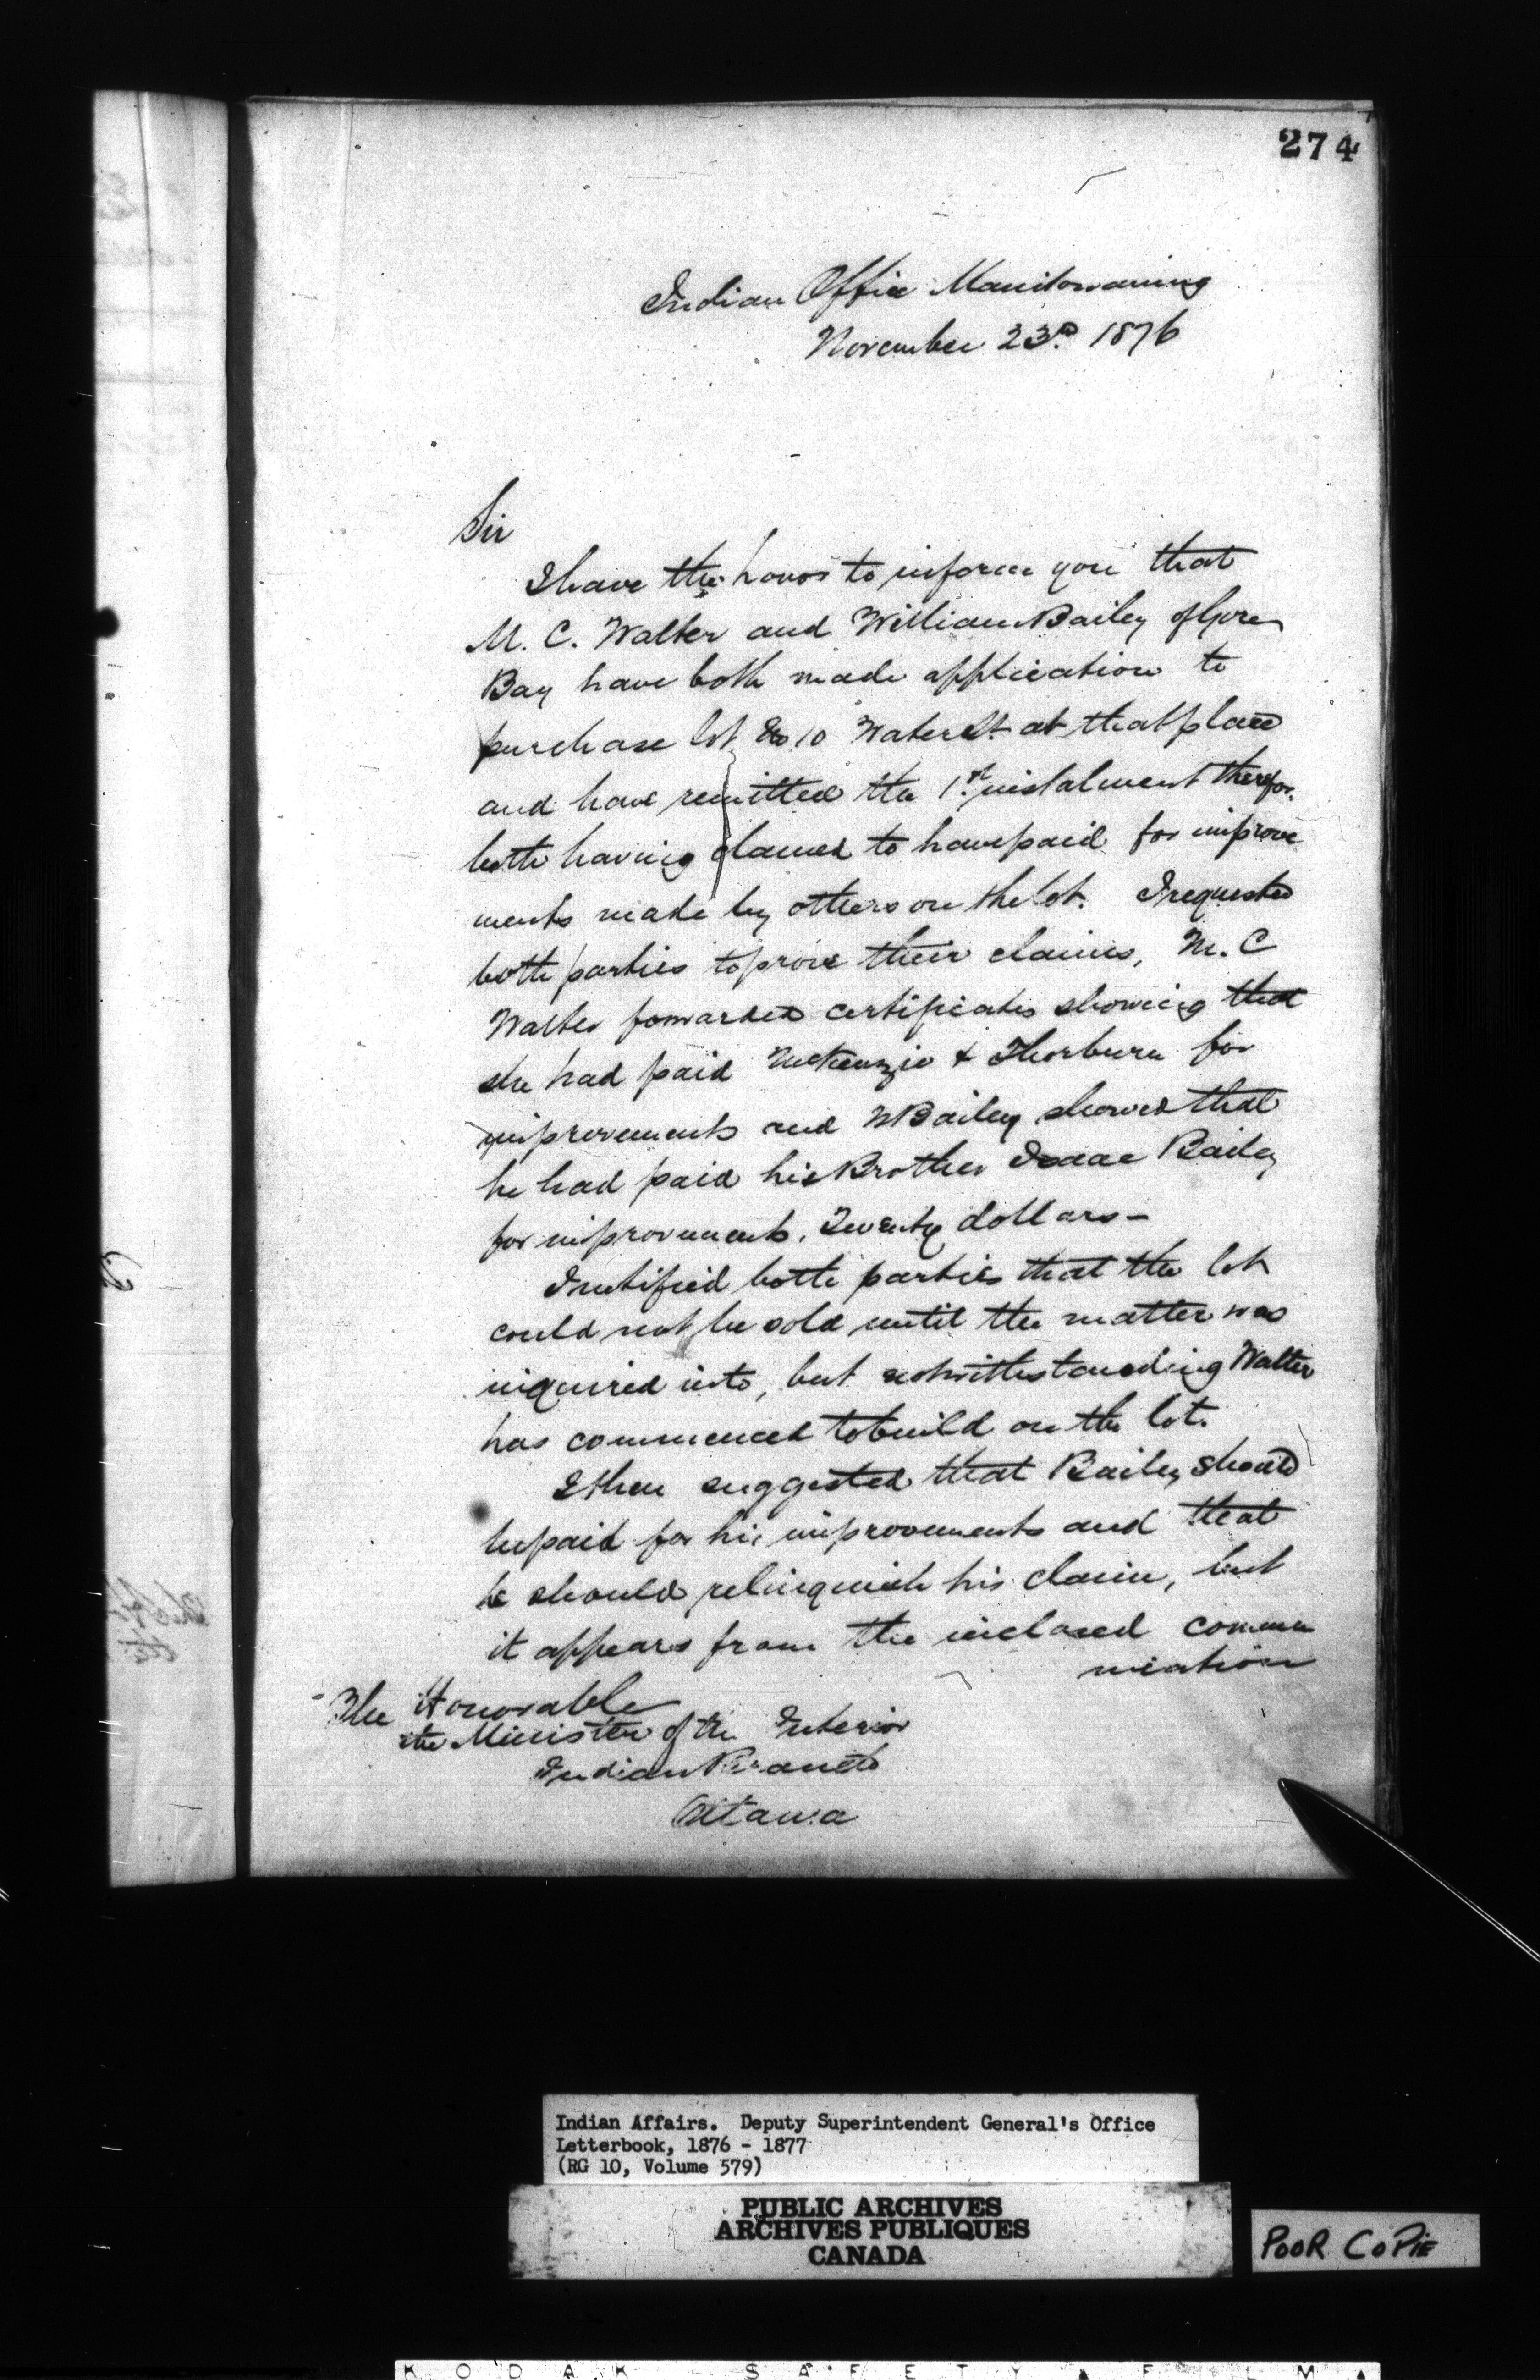 274
Indian Office Manitowaning
November 23rd 1876
Sir
I have the honor to inform you that
M. C. Walter and William Bailey of Gore
Bay have both made application to
purchase lot No 10 Water St. at that place
and have remitted the 1st instalment therefor.
both having claimed to have paid for improve
ments made by others on the lot. I requested
both parties to prove their claims, M. C
Walter forwarded certificates showing that
she had paid McKenzie & Thorburn for
improvements and W Bailey showed that
he had paid his Brother Isaac Bailey
for improvements, Twenty dollars -
I notified both parties that the lot
could not be sold until the matter was
inquired into, but notwithstanding Walter
has commenced to build on the lot.
I then suggested that Bailey should
be paid for his improvements and that
he should relinquish his claim, but
it appears from the inclosed commu
nication
The Honorable
the Minister of the Interior
Indian Branch
Ottawa
Indian Affairs. Deputy Superintendent General's Office
Letterbook, 1876 - 1877
(RG 10, Volume 579)
PUBLIC ARCHIVES
ARCHIVES PUBLIQUES
CANADA
POOR COPIE
KODAK SAFETY FILM